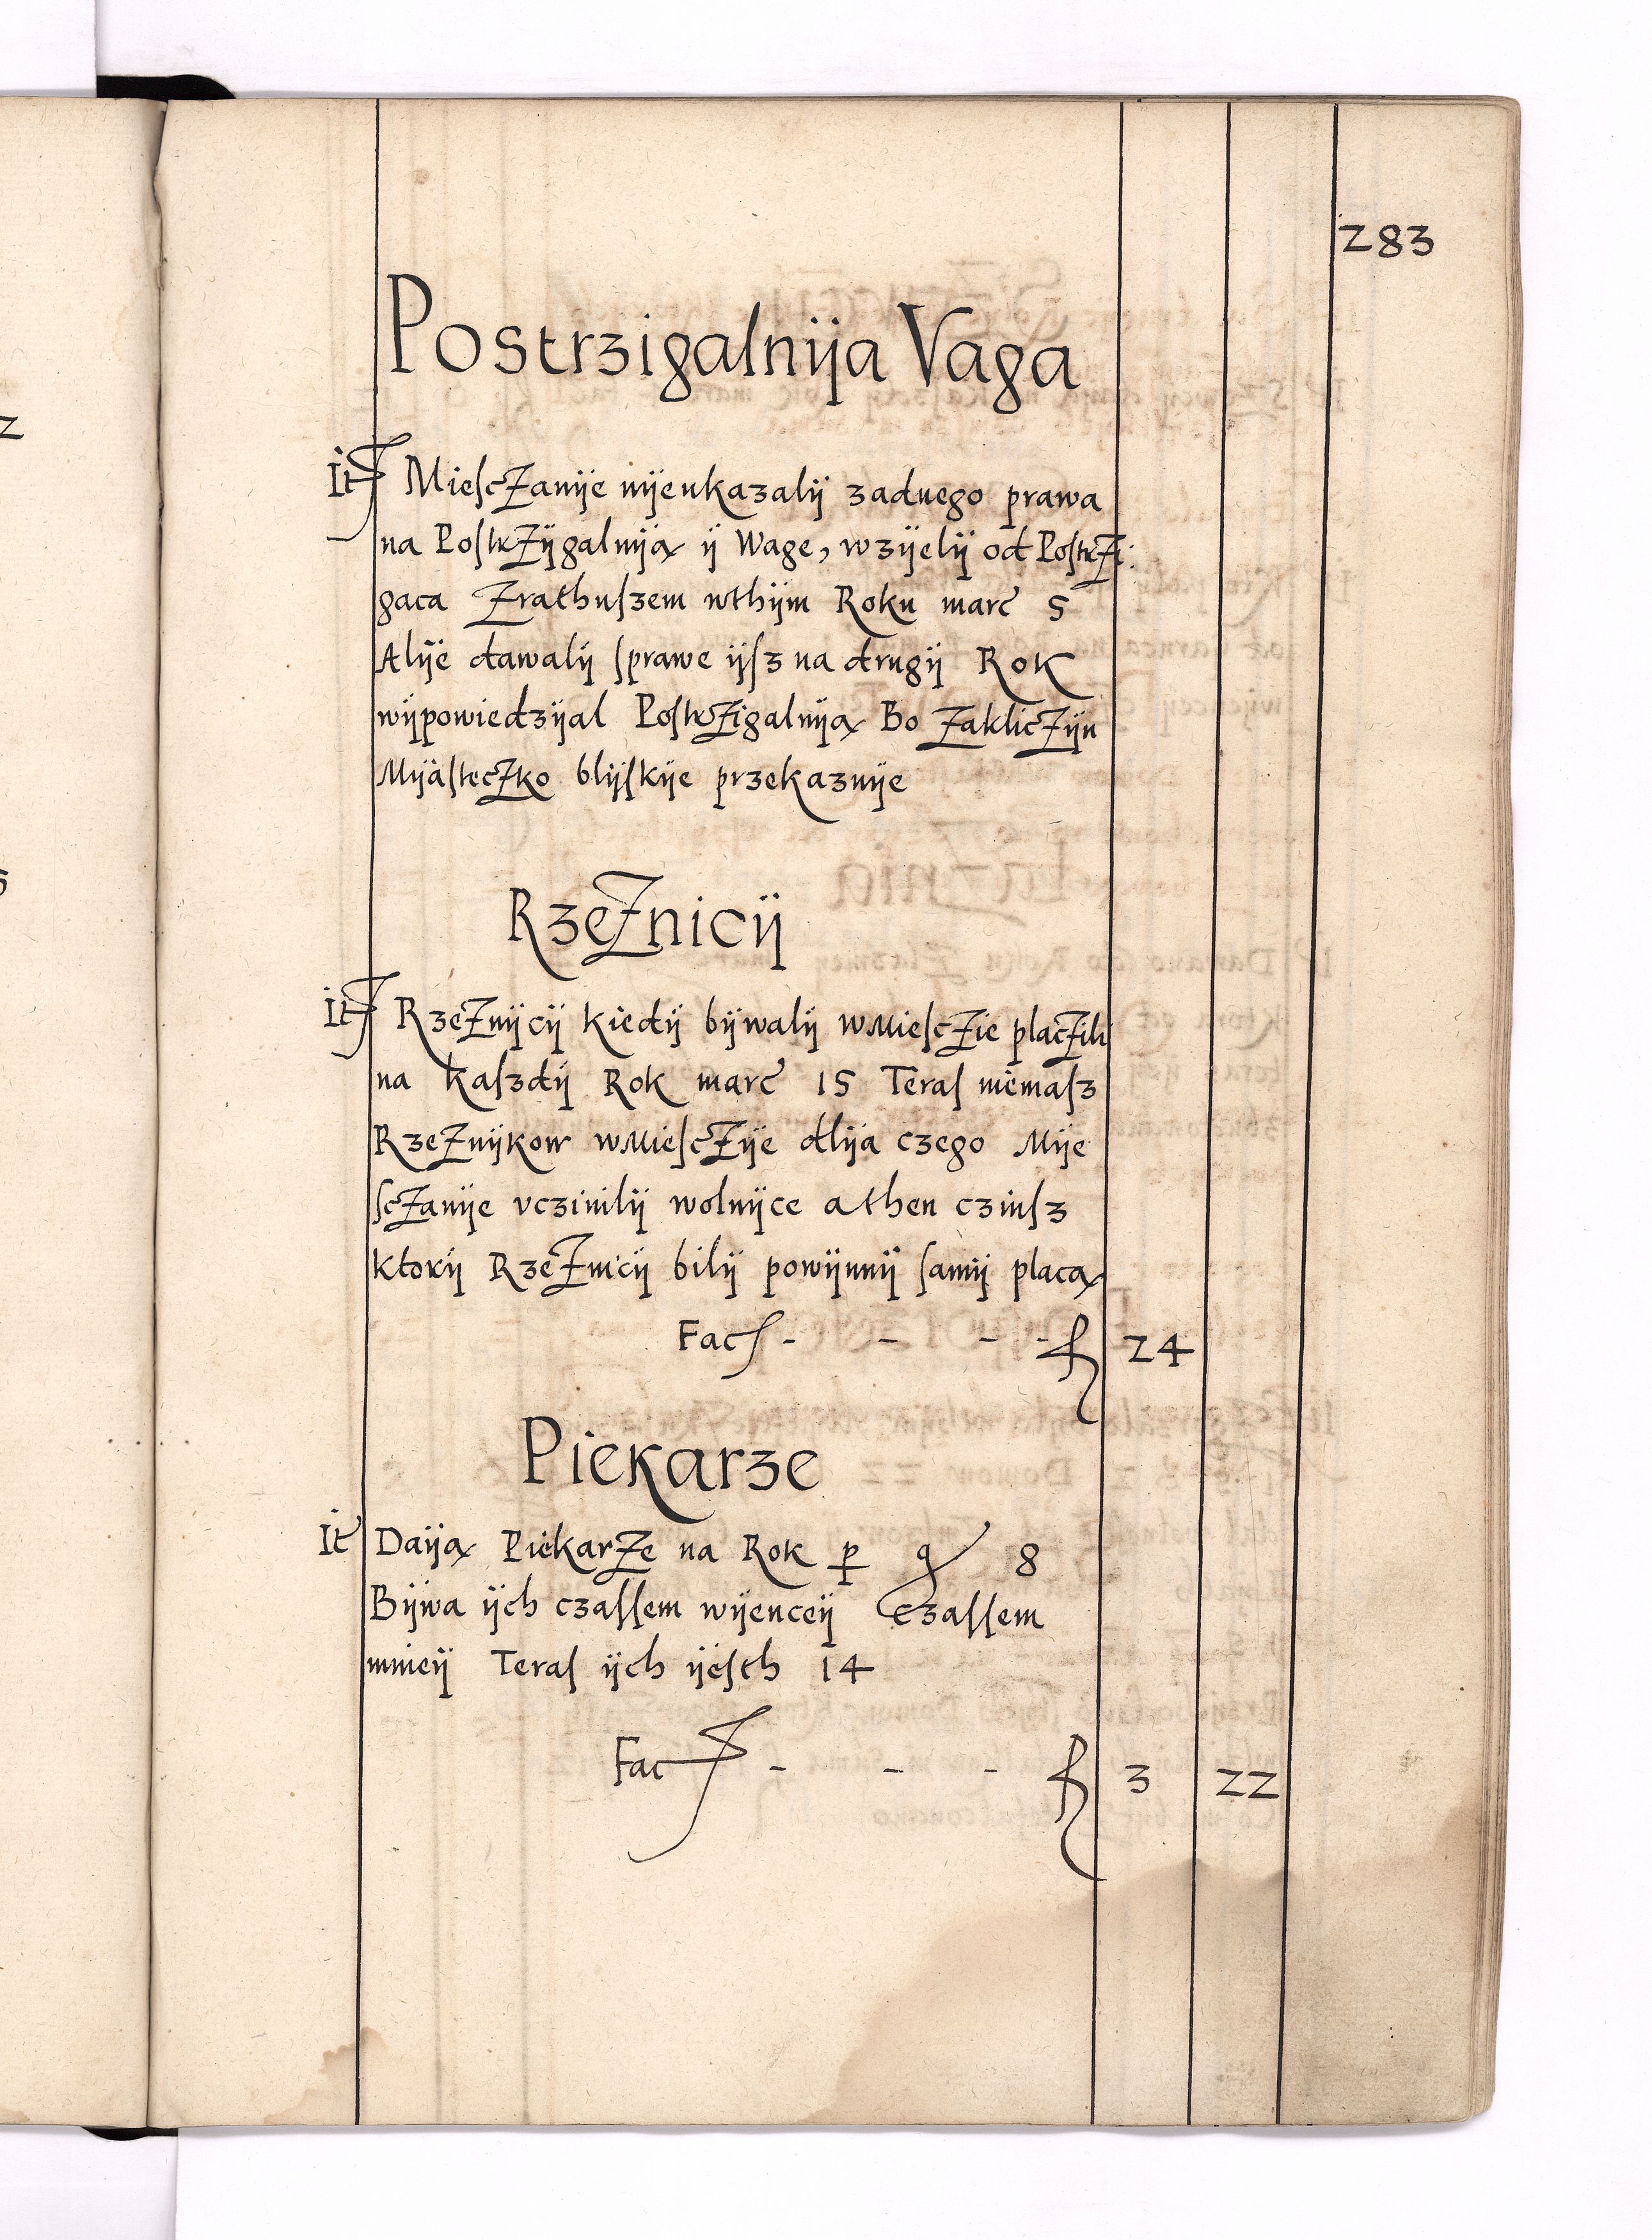 283
Postrzigalnija Vaga
It Miesczanije nijeukazalij zadnego prawa
na Postrzijgalniją ij Wage, wzijelij od Postrzi:
gaca Zrathuszem wthijm Roku marc 5
Alije dawalij sprawe ijsz na drugij Rok
wijpowiedzijal Postrzigalniją Bo Zakliczijn
Mijasteczko blijskije przekaznije
Rzeznicij
It Rzeznijcij kiedij bijwalij wmiesczie placzili
na kaszdij Rok marc 15 Teras niemasz
Rzeznijkow wmiesczije dlija czego Mije
sczanije vczinilij wolnijce athen czinsz
ktorij Rzeznicij bilij powijnnij samij placą
Fac - - - - f 24
Piekarze
It Daiją Piekarze na Rok p g 8
Bijwa ijch czassem wijenceij Czassem
mnieij Teras ijch ijesth 14
Fac - - - f 3 22
2
5